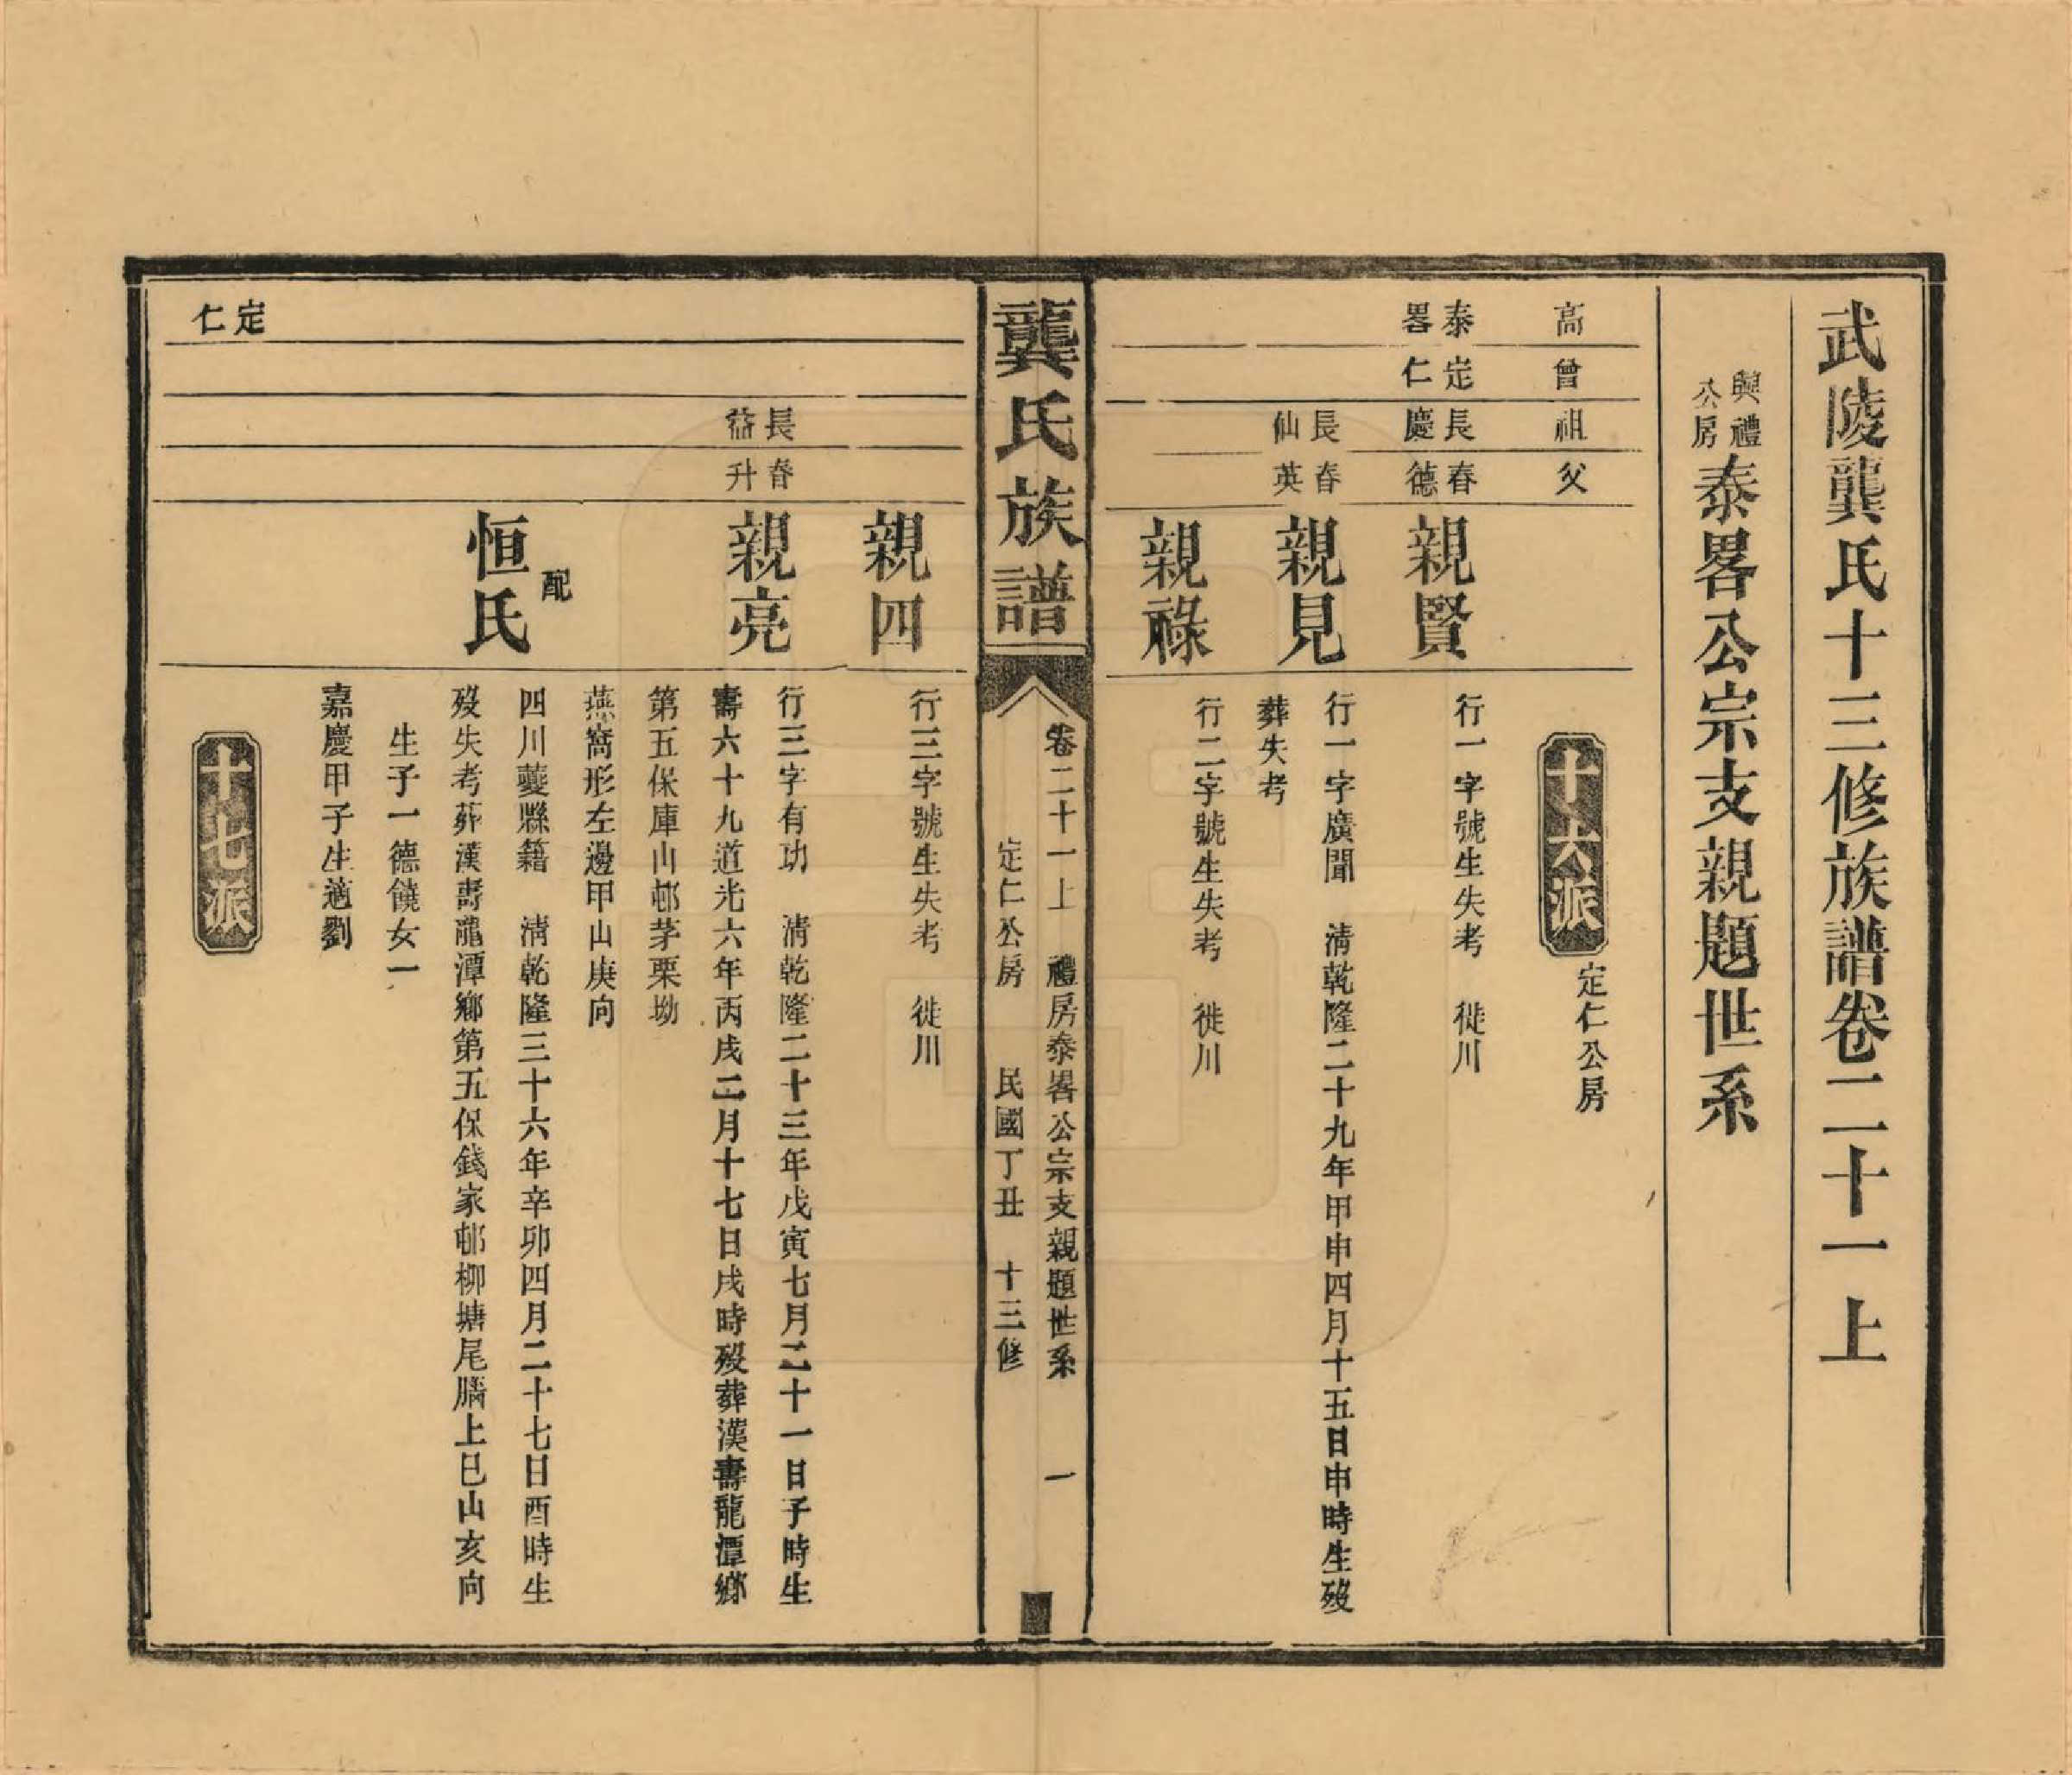 武陵龔氏十三修族譜卷二十一上
興禮公房泰畧公宗支親題世系
高曾祖父
十六派 定仁公房
泰畧 定仁 長慶 春德
親賢
行一字號生失考 徙川
長仙 春英
親見
行一字廣聞 淸乾隆二十九年甲申四月十五日申時生歿
葬失考
親祿
行二字號生失考 徙川
龔氏族譜
卷二十一上 禮房泰畧公宗支親題世系 一
定仁公房 民國丁丑 十三修
親四
行三字號生失考 徙川
長益 春升
親亮
行三字有功 淸乾隆二十三年戊寅七月二十一日子時生
壽六十九道光六年丙戌二月十七日戌時歿葬漢壽龍潭鄉
第五保庫山邨茅栗坳
燕窩形左邊甲山庚向
配
恒氏
四川夔縣籍 淸乾隆三十六年辛卯四月二十七日酉時生
歿失考葬漢壽龍潭鄉第五保錢家邨柳塘尾膓上巳山亥向
生子一德饒女一
嘉慶甲子生適劉
十七派
定仁